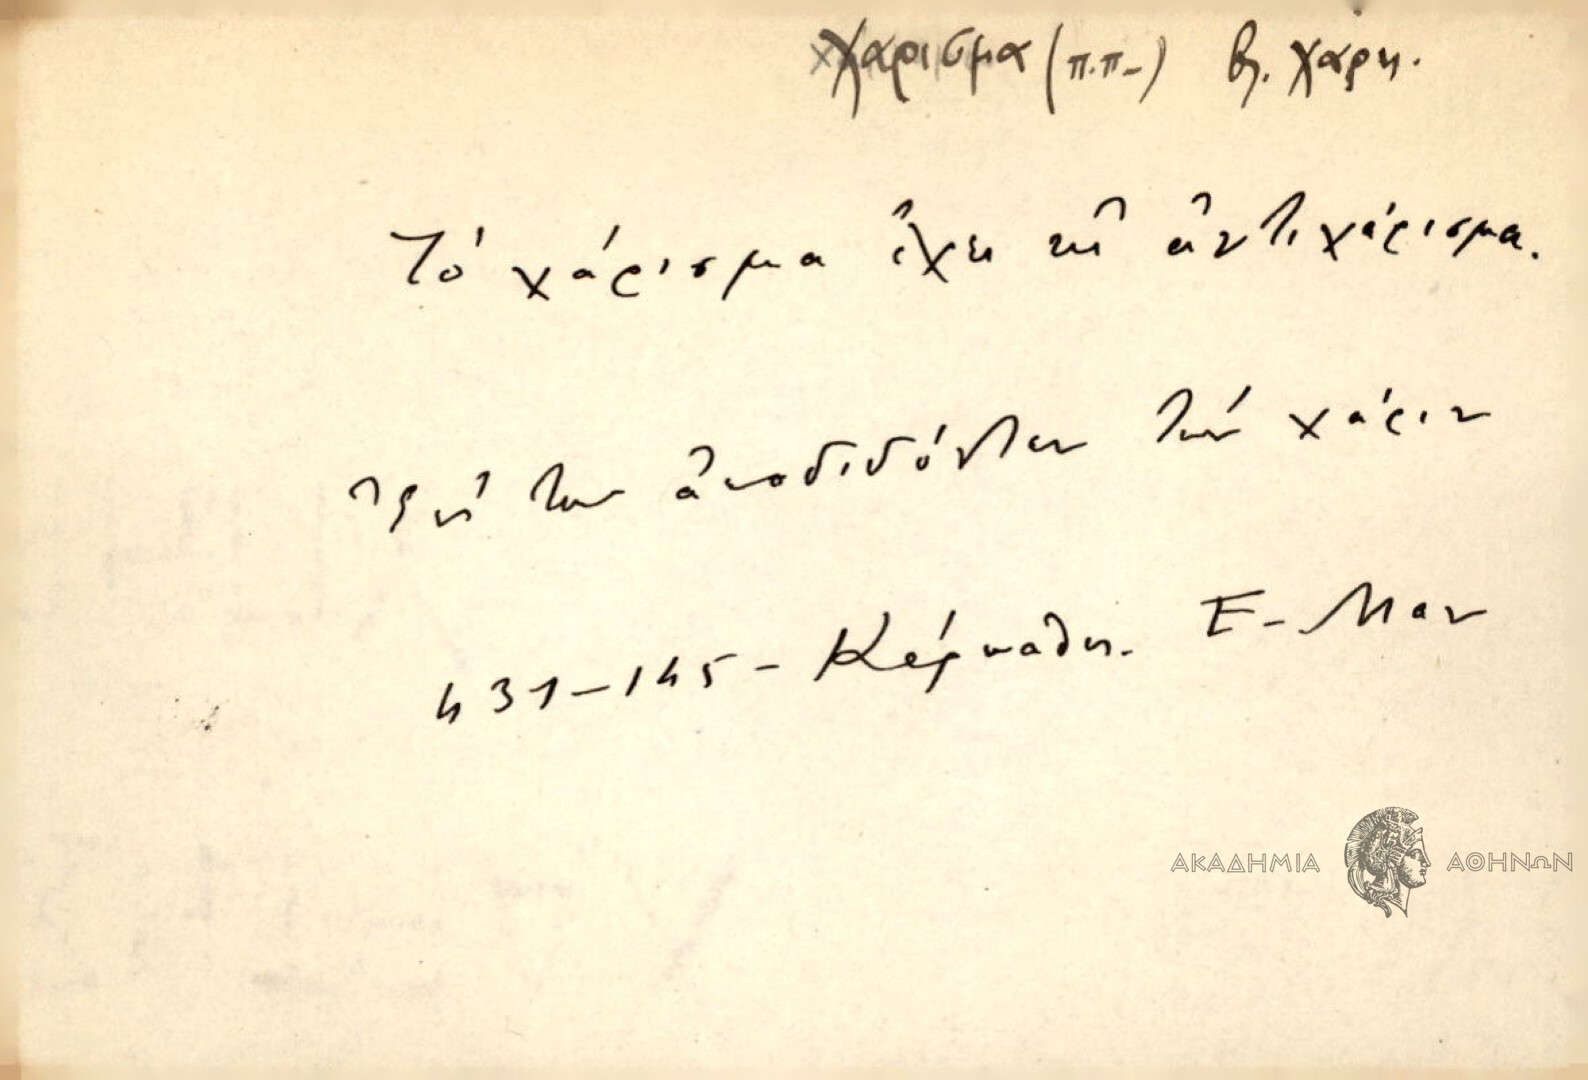 Χάρισμα (π.π-) βλ. χάρη.
Τό χάρισμα ἔχει καὶ ἀντιχάρισμα.
Ἐπί των ἀποδιδόντων τήν χάριν
431-145- Κάρπαθος. Ε- Μαν
ΑΚΑΔΗΜΙΑ ΑΘΗΝΩΝ